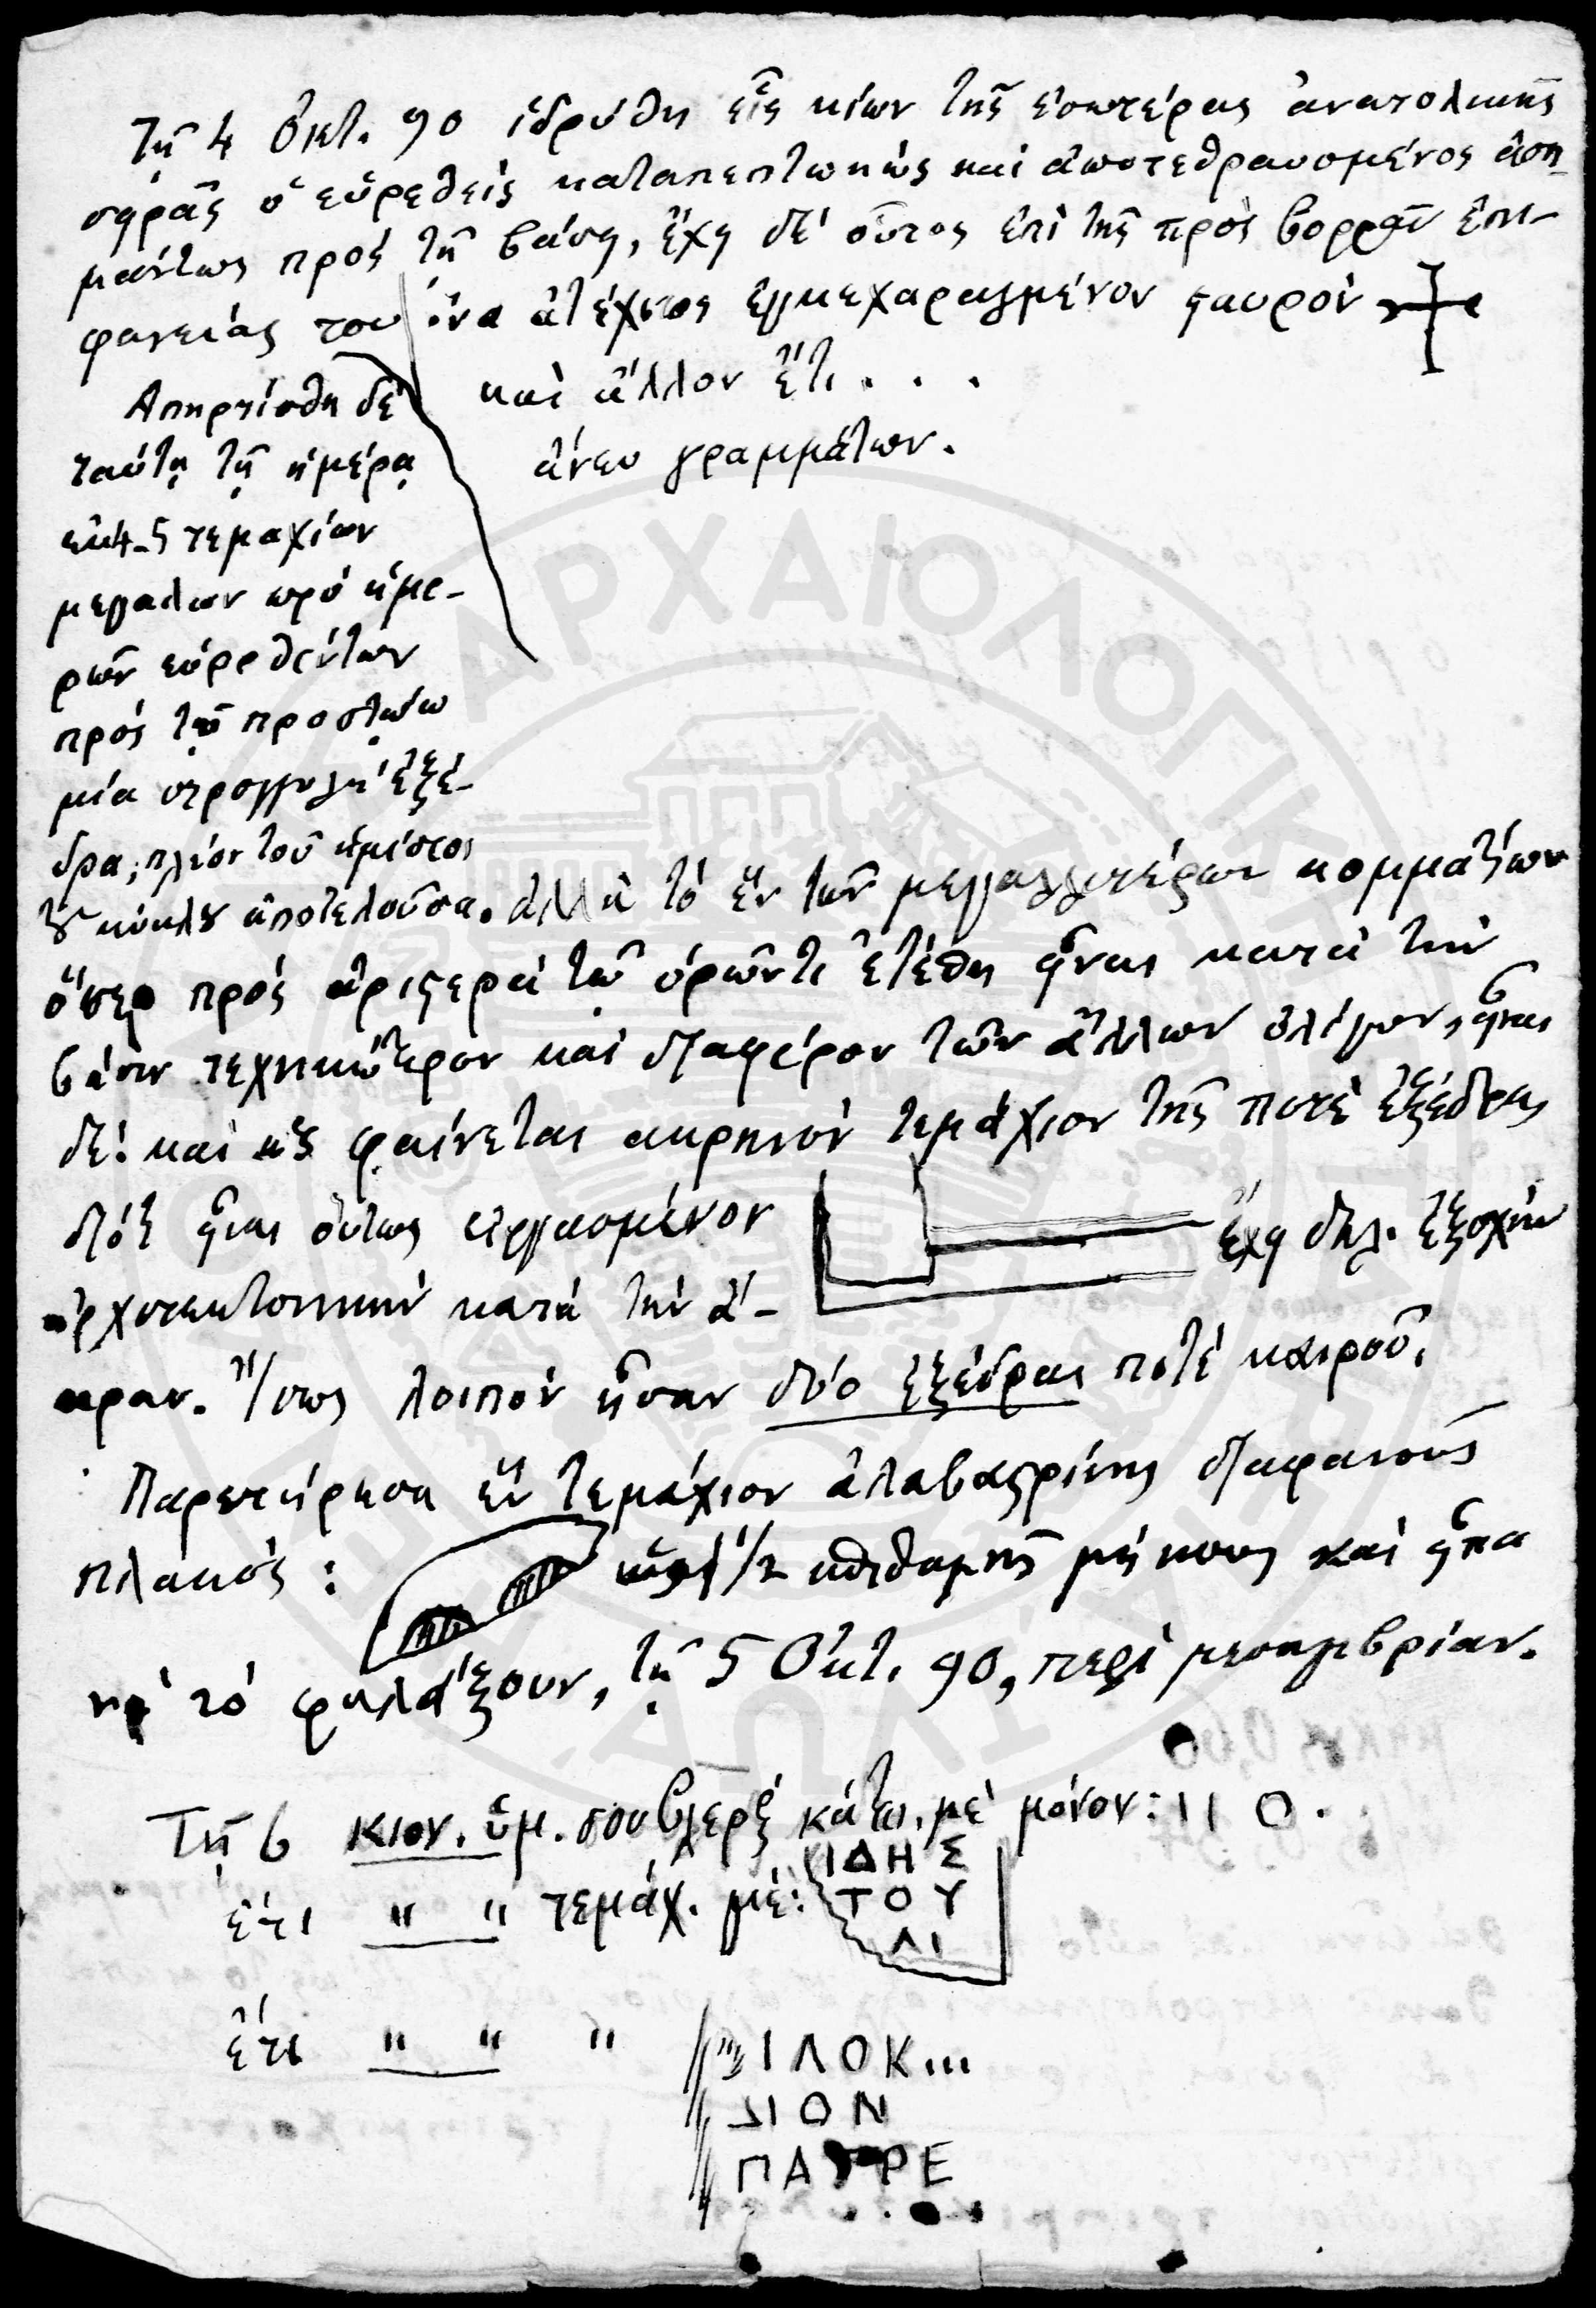 Τῇ 4 Ὀκτ. 90 ἱδρύθη εἷς κίων τῆς ἐσωτέρας ἀνατολικῆς
σειρᾶς ὁ εὑρεθεὶς καταπεπτωκὼς καὶ ἀποτεθραυσμένος
πρὸς τῇ βάσει, ἔχει δὲ οὗτος ἐπὶ τῆς πρὸς βορρᾶν ἐπι-
φανείας του ἕνα ἀτέχνως ἐγκεχαραγμένον σταυρὸν
καὶ ἄλλον ἔτι . . .
ἄνευ γραμμάτων.
Ἀπηρτίσθη δὲ
ταύτῃ τῇ ἡμέρᾳ
ἐκ 4-5 τεμαχίων
μεγάλων πρὸ ἡμε-
ρῶν εὑρεθέντων
πρὸς τῷ προστώῳ
μία στρογγύλη ἐξέ-
δρα, πλέον τοῦ ἡμίσεος
τοῦ κύκλου ἀποτελοῦσα. ἀλλὰ τὸ ἓν τῶν μεγαλειτέρων κομματίων
ὅπερ πρὸς ἀριστερὰ τῷ ὁρῶντι ἐτέθη εἶναι κατὰ τὴν
βάσιν τεχνικώτερον καὶ διαφέρον τῶν ἄλλων ὀλίγον, εἶναι
δὲ καὶ ὡς φαίνεται ἀκρινὸν τεμάχιον τῆς ποτὲ ἐξέδρας
διότι εἶναι οὕτως εἰργασμένον
ἔχει δηλ. ἐξοχὴν
ἀρχιτεκτονικὴν κατὰ τὴν ἄ-
κραν. Ἴσως λοιπὸν ἦσαν δύο ἐξέδραι ποτὲ καιροῦ.
Παρετήρησα ἓν τεμάχιον ἀλαβαστρίνης διαφανοῦς
πλακός: 1/2 σπιθαμῆς μήκους καὶ εἶπα
νὰ τὸ φυλάξουν, τῇ 5 Ὀκτ. 90, περὶ μεσημβρίαν.
Τῇ 6 κιον. ὑμ. κάτω, μὲ μόνον: ΙΙ Ο.
ἔτι " " τεμάχ. μὲ: ΙΔΗΣ
ΤΟΥ
ΛΙ
ἔτι " " " ΙΛΟΚ...
ΙΟΝ
ΠΑΤΡΕ